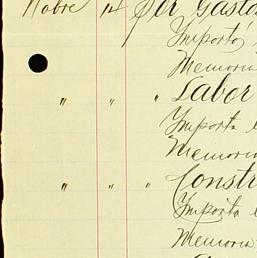 Nobre 14 Por Gastos
Importa
Memoria
" " " Labor
Importa
Memoria
" " " Constr
Importa
Memoria